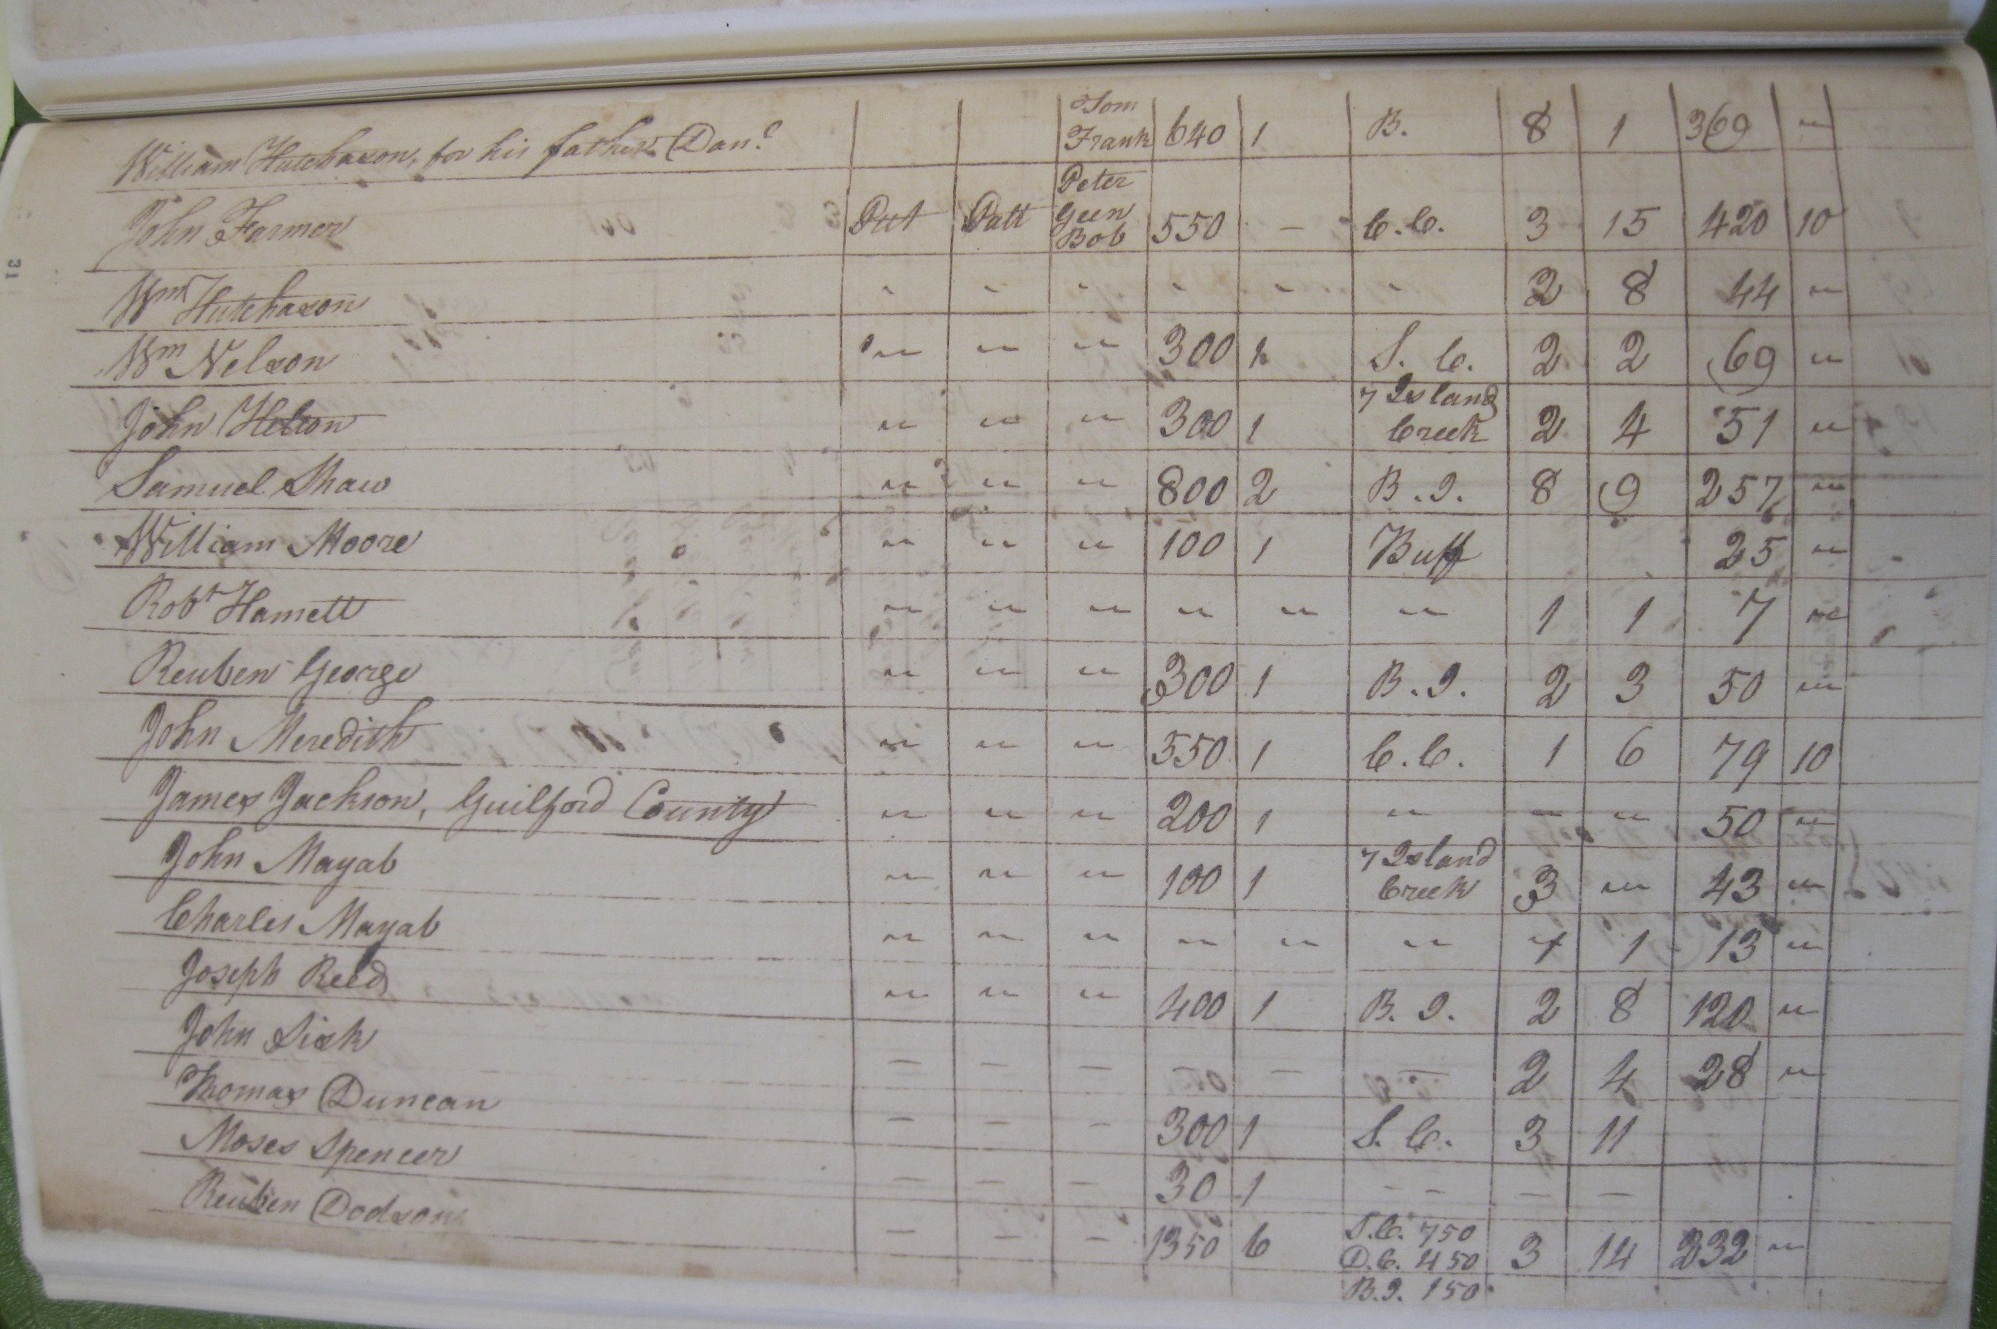 William Hutchason, for his father Danl Tom Frank 640 1 B. 8 1 369 "
John Farmer Putt Patt Peter Geen Bob 550 – C.C. 3 15 420 10
Wm Hutchason " " " " " " 2 8 44 "
Wm Nelson " " " 300 1 S. C. 2 2 69 "
John Helton " " " 300 1 7 Island Creek 2 4 51 "
Samuel Shaw " " " 800 2 B. I. 8 9 257 "
William Moore " " " 100 1 Buff 25 "
Robt Hamett " " " " " " 1 1 7 "
Reuben George " " " 300 1 B. I. 2 3 50 "
John Meredith " " " 550 1 C.C. 1 6 79 10
James Jackson, Guilford County " " " 200 1 " " " 50 "
John Mayab " " " 100 1 7 Island Creek 3 " 43 "
Charles Mayab " " " " " " 1 1 13 "
Joseph Reed " " " 400 1 B. I. 2 8 120 "
John Sisk – – – – – 2 4 28 "
Thomas Duncan – – – 300 1 S. C. 3 11
Moses Spencer – – – 30 1 – – – –
Reuben Dodson – – – 1350 6 S.C. 750 D.C. 450 B.I. 150 3 14 332 "
31